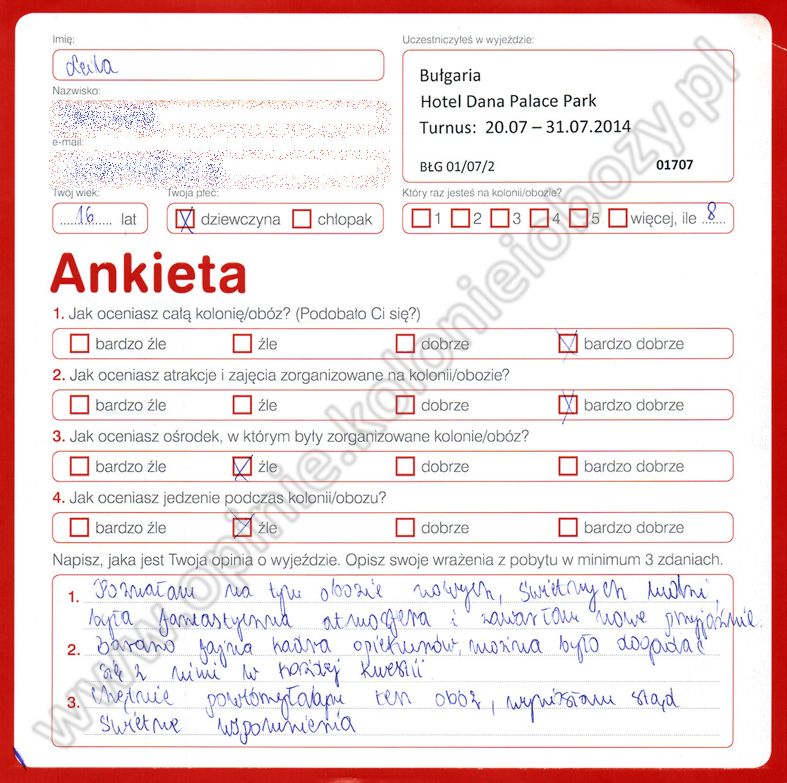 Imię:
Leila
Nazwisko:
e-mail:
Twój wiek:
16 lat
Twoja płeć:
dziewczyna chłopak
Uczestniczyłeś w wyjeździe:
Bułgaria
Hotel Dana Palace Park
Turnus: 20.07 – 31.07.2014
BŁG 01/07/2 01707
Który raz jesteś na kolonii/obozie?
1 2 3 4 5 więcej, ile 8
Ankieta
1. Jak oceniasz całą kolonię/obóz? (Podobało Ci się?)
bardzo źle źle dobrze bardzo dobrze
2. Jak oceniasz atrakcje i zajęcia zorganizowane na kolonii/obozie?
bardzo źle źle dobrze bardzo dobrze
3. Jak oceniasz ośrodek, w którym były zorganizowane kolonie/obóz?
bardzo źle źle dobrze bardzo dobrze
4. Jak oceniasz jedzenie podczas kolonii/obozu?
bardzo źle źle dobrze bardzo dobrze
Napisz, jaka jest Twoja opinia o wyjeździe. Opisz swoje wrażenia z pobytu w minimum 3 zdaniach.
1. Poznałam na tym obozie nowych, świetnych ludzi,
była fantastyczna atmosfera i zawarłam nowe przyjaźnie.
2. Bardzo fajna kadra opiekunów, można było dogadać
się z nimi w każdej kwestii
3. Chętnie powtórzyłabym ten obóz, wyniosłam stąd
świetne wspomnienia
www.opinie.kolonieiobozy.pl